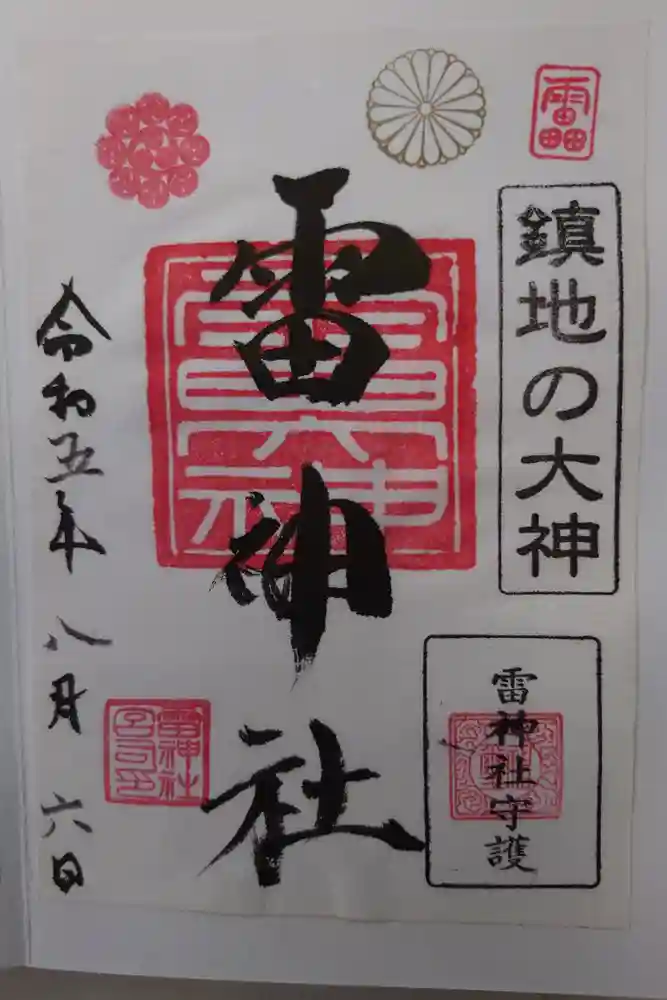 鎮地の大神
雷神社守護
雷神社
令和五年八月六日
雷神社
宮司之印